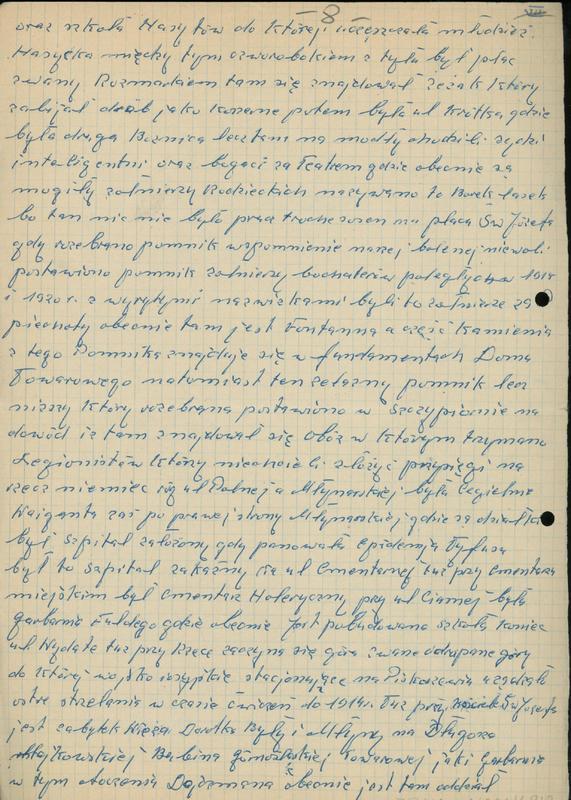 – 8 –
oraz szkoła Hasytów do której uczęszczała młodzież
Hasycka między tym czworobokiem z tyłu był plac
zwany Rozmarkiem tam się znajdował Rzezak który
zabijał drób jako koszerne potem była ul Krótka gdzie
była druga Boznica lecz tam na modły chodzili żydzi
inteligentni oraz bogaci za Teatrem gdzie obecnie są
mogiły żołnierzy Radzieckich nazywano to Borek lasek
bo tam nic nie było prócz trochę sosen na placu Św Józefa
gdy rozebrano pomnik wspomnienie naszej bolenej niewoli
postawiono pomnik żołnierzy bochaterów poległych w 1918
i 1920 r. z wyrytymi nazwiskami byli to żołnierze 29
piechoty obecnie tam jest Fontanna a część kamienia
z tego Pomnika znajduje się w fundamentach Domu
Towarowego natomiast ten żelazny pomnik lecz
niższy który rozebrano postawiono w Szczypiornie na
dowód iż tam znajdował się Obóz w którym trzymano
Legionistów którzy niechcieli złożyć przysięgi na
rzecz niemiec róg ul Polnej a Młynarskiej była Cegielnia
Waiganta zaś po prawej strony Młynarskiej gdzie są działki
był szpital założony gdy panowała epidemja Tyfusu
był to szpital zakaźny na ul Cmentarnej tuż przy cmentarzu
miejskim był cmentarz Holeryczny przy ul Ciasnej była
garbarnia Fuldego gdzie obecnie jest pobudowana szkoła koniec
ul Wydarte tuż przy Rzece zaczyna się góra zwane odrapane góry
do której wojsko rosyjskie stacjonujące na Piskorzewiu urządzali
ostre strzelania w czasie ćwiczeń do 1914 r. Tuż przy kościele Św Józefa
jest zabytek Wieża Dorotka Były i Młyny na Długosza
Majkowskiej Babina Górnośląskiej Towarowej jaki Garbarnie
w tym otoczeniu Dajzmana obecnie jest tam oddział